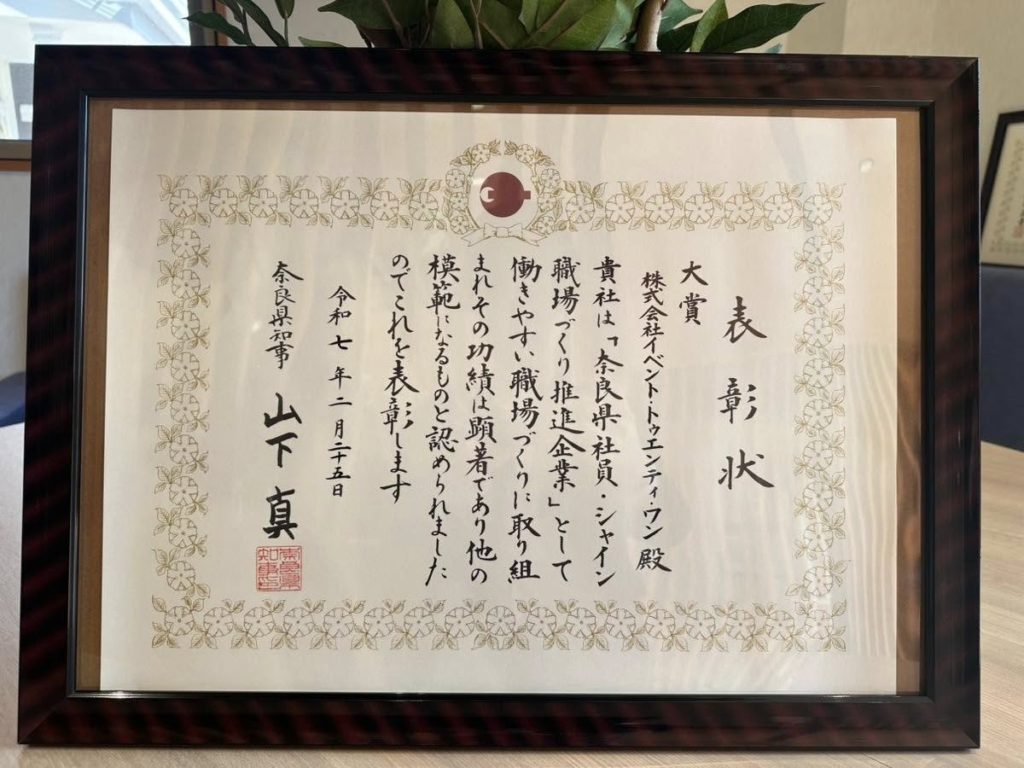 表彰状
大賞
株式会社イベント・トゥエンティ・ワン 殿
貴社は「奈良県社員・シャイン
職場づくり推進企業」として
働きやすい職場づくりに取り組
まれその功績は顕著であり他の
模範になるものと認められました
のでこれを表彰します
令和七年二月二十五日
奈良県知事 山下真